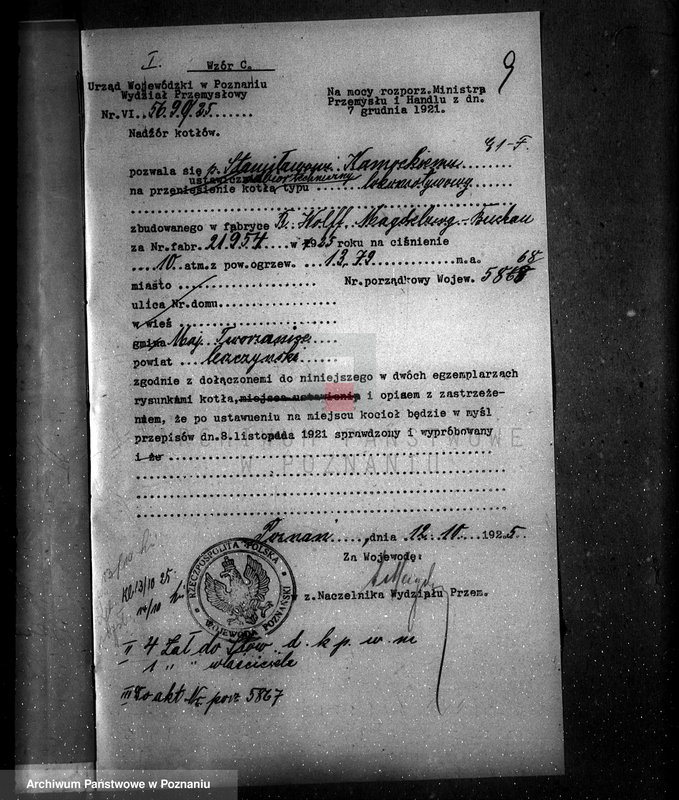 I.
Wzór C.
9
Urząd Wojewódzki w Poznaniu
Wydział Przemysłowy
Nr.VI..5699/25.......
Nadzór kotłów.
Na mocy rozporz.Ministra
Przemysłu i Handlu z dn.
7 grudnia 1921.
pozwala się p. Stanisławowi
na przeniesienie kotła typu .... lokomobilowy
zbudowanego w fabryce R. Wolff, Magdeburg-Buckau
za Nr.fabr. 21954 w 1925 roku na ciśnienie
....10 atm.z pow.ogrzew. ..13,79..........m.a.
68
miasto ................
Nr.porządkowy Wojew. 5868
ulica Nr.domu................
w wieś ....................
gmina Maj.
powiat ....
zgodnie z dołączonemi do niniejszego w dwóch egzemplarzach
rysunkami kotła,miejsca ustawienia i opisem z zastrzeże-
niem, że po ustawueniu na miejscu kocioł będzie w myśl
przepisów dn.8.listopada 1921 sprawdzony i wypróbowany
i że ........................................
ARCHIWUM PAŃSTWOWE
W POZNANIU
Poznań ....,dnia 12.10 .1925.
Za Wojewodę:
z.Naczelnika Wydziału Przem.
RZECZPOSPOLITA POLSKA
WOJEWODA POZNAŃSKI
Kb 13/10 25
14/10
II 4 Zał do Stow. d. k p. w. m
1 " " właściciela
III Do akt Nr porz 5867
Archiwum Państwowe w Poznaniu